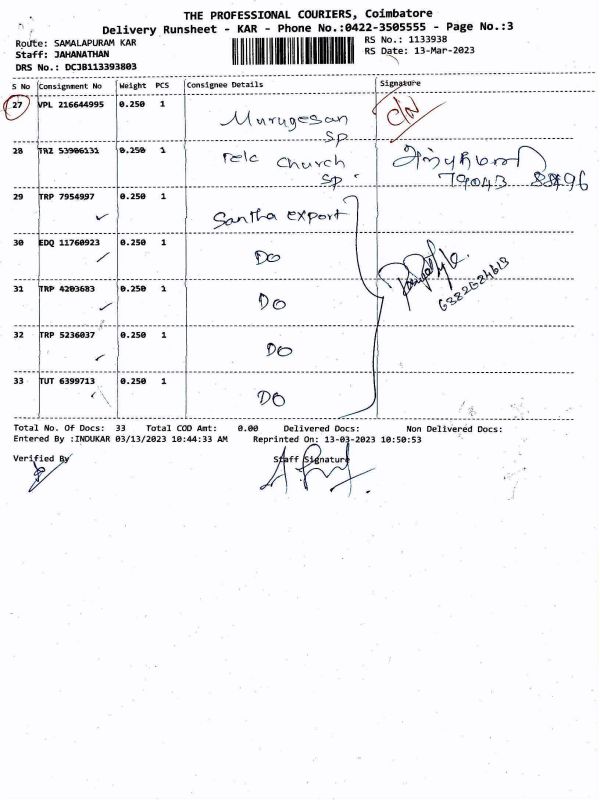 THE PROFESSIONAL COURIERS, Coimbatore
Delivery Runsheet - KAR - Phone No.:0422-3505555 - Page No.:3
Route: SAMALAPURAM KAR RS No.: 1133938
Staff: JAHANATHAN RS Date: 13-Mar-2023
DRS No.: DCJB113393803
S No Consignment No Weight PCS Consignee Details Signature
27 VPL 216644995 0.250 1 Murugesan C/N
SP
28 TRZ 53906131 0.250 1 Telc church
SP. 79043
29 TRP 7954997 0.250 1 Santha export
30 EDQ 11760923 0.250 1 DO
31 TRP 4203683 0.250 1 DO
32 TRP 5236037 0.250 1 DO
33 TUT 6399713 0.250 1 DO
Total No. Of Docs: 33 Total COD Amt: 0.00 Delivered Docs: Non Delivered Docs:
Entered By :INDUKAR 03/13/2023 10:44:33 AM Reprinted On: 13-03-2023 10:50:53
Verified By Staff Signature